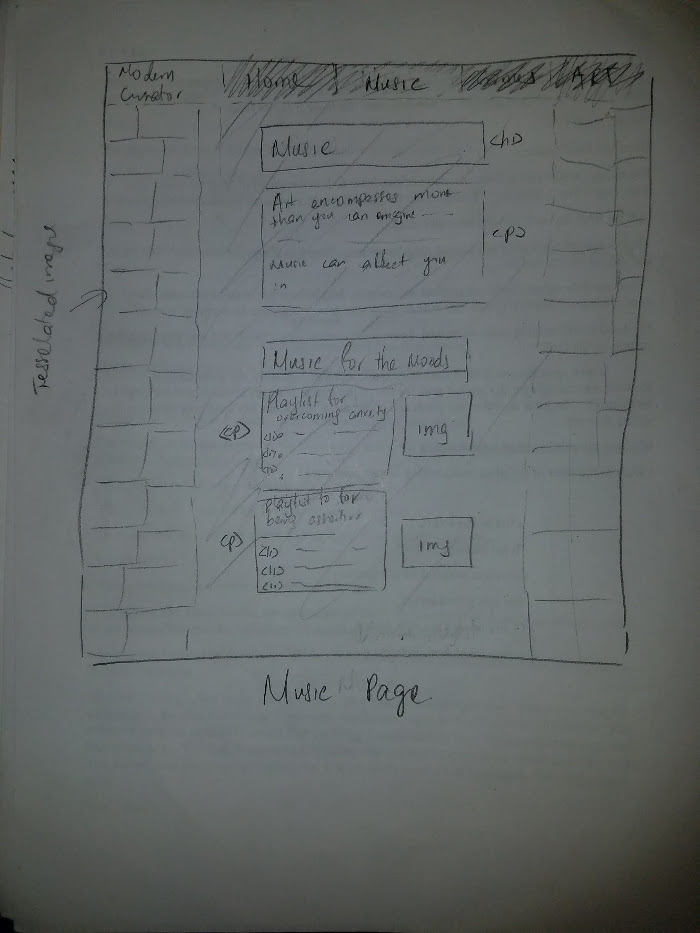 Modern
Curator
Home
Music
Art
Music
<h1>
Art encompasses more
than you can imagine
<p>
Music can affect you
in
Tessellated image
Music for the Moods
Playlist for
overcoming anxiety
<p>
img
Playlist to for
being
<p>
<li>
<li>
<li>
img
Music Page